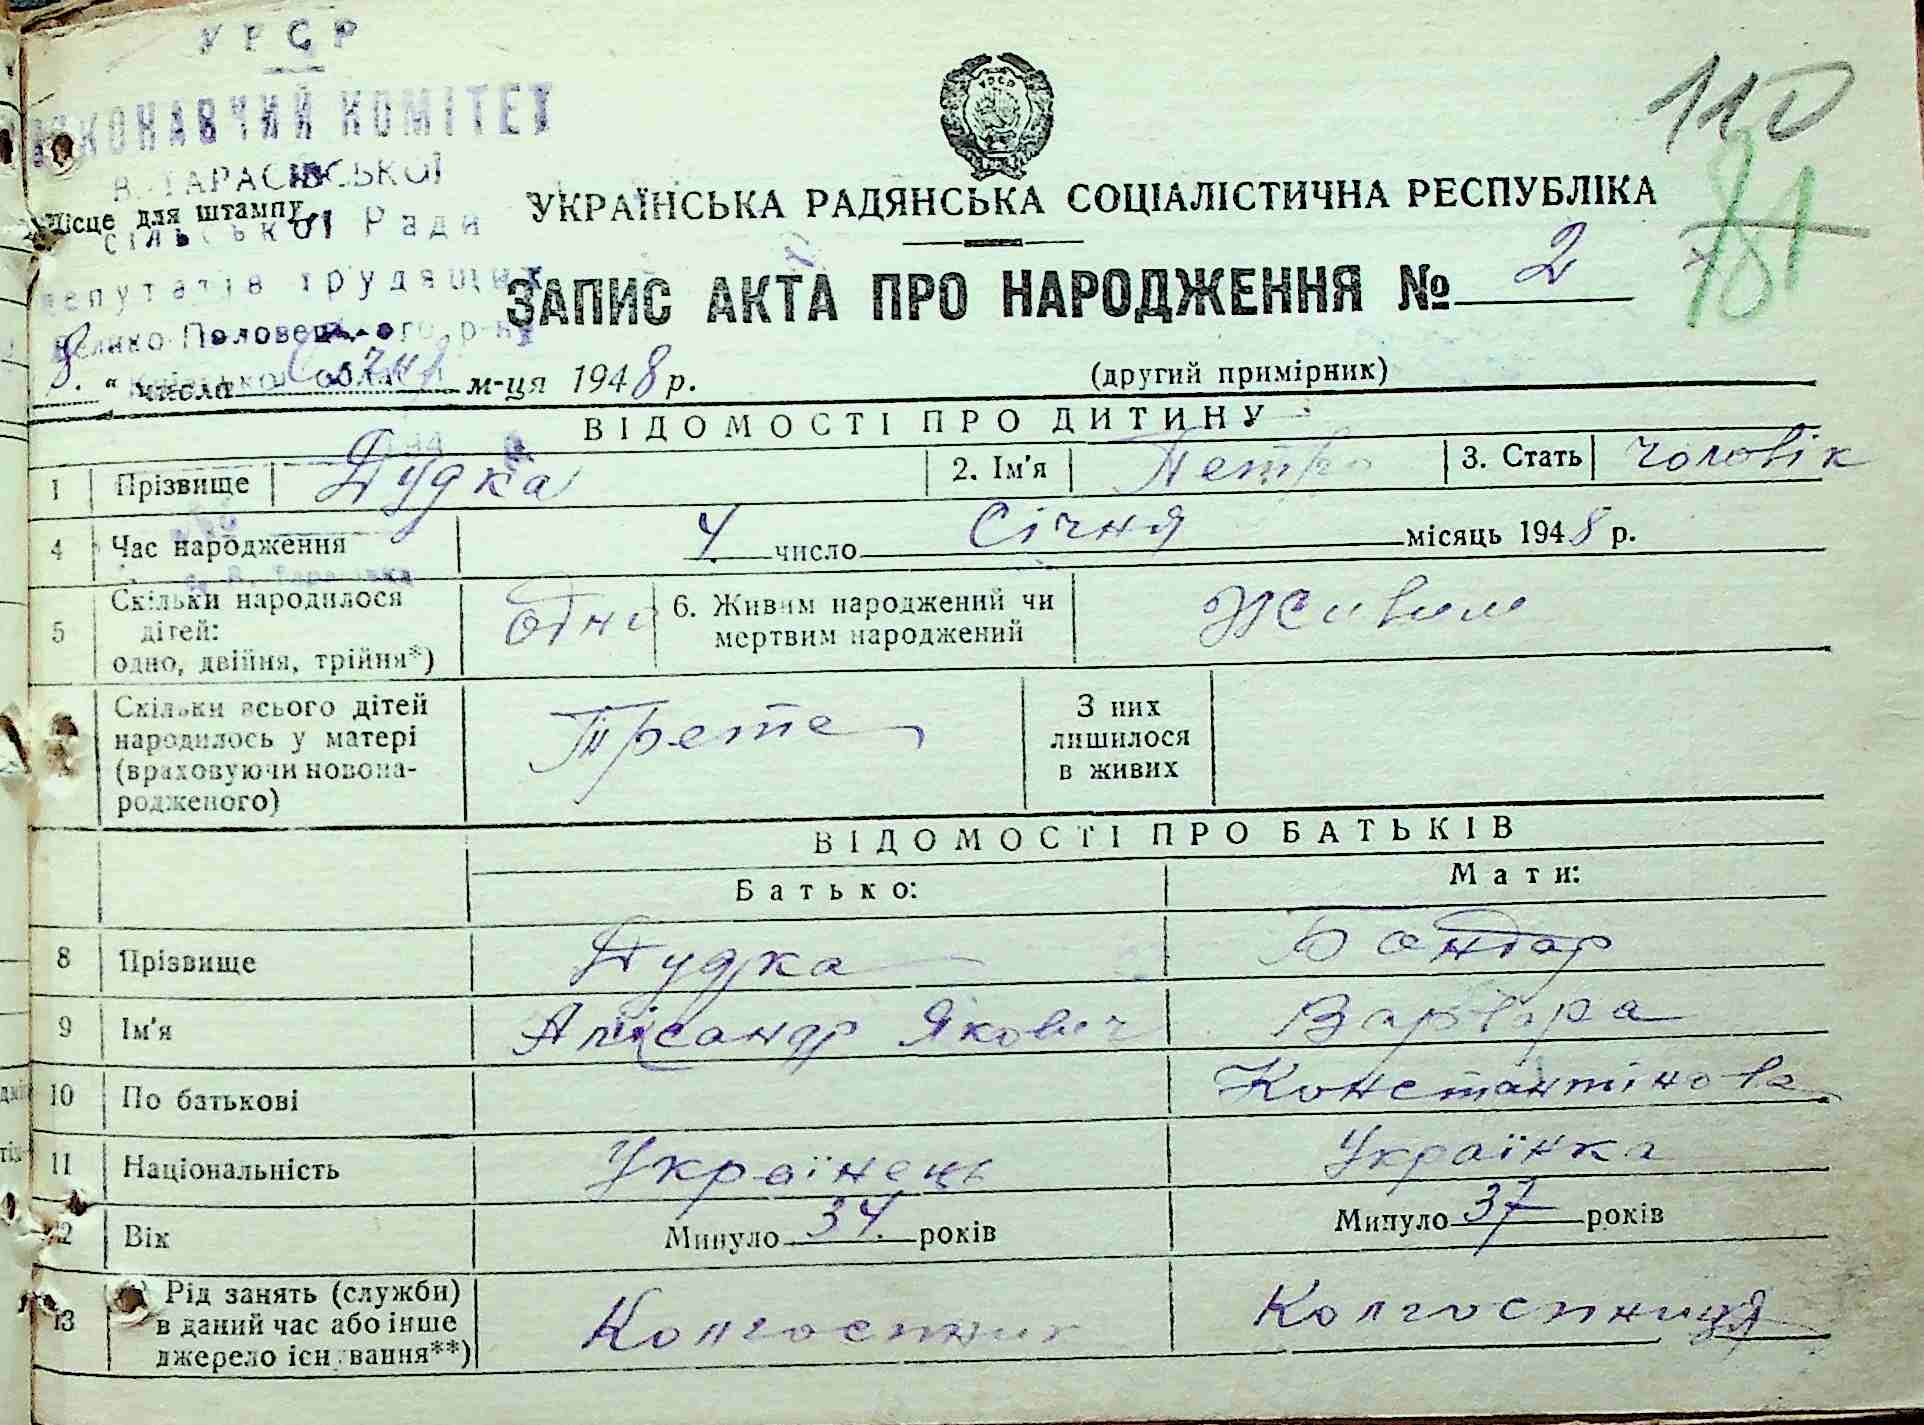 УРСР
ВИКОНАВЧИЙ КОМІТЕТ
В. ТАРАСІВСЬКОЇ
Місце для штампу
сільської Ради
депутатів трудящих
Велико-Половецького р-ну
Київської області
110
81
УКРАЇНСЬКА РАДЯНСЬКА СОЦІАЛІСТИЧНА РЕСПУБЛІКА
ЗАПИС АКТА ПРО НАРОДЖЕННЯ № 2
8. " числа Січня м-ця 1948 р.
(другий примірник)
ВІДОМОСТІ ПРО ДИТИНУ
1 Прізвище Дудка 2. Ім'я Петро 3. Стать Чоловік
4 Час народження 4. число Січня місяць 1948 р.
с. В. Тарасівка
5 Скільки народилося дітей: одно, двійня, трійня*) 6. Живим народжений чи мертвим народжений Живим
Скільки всього дітей народилось у матері (враховуючи новонародженого) Трете З них лишилося в живих
ВІДОМОСТІ ПРО БАТЬКІВ
Батько: Мати:
8 Прізвище Дудка Бондар
9 Ім'я Алісандр Якович Варвара
10 По батькові Константінова
11 Національність Українець Українка
12 Вік Минуло 34. років Минуло 37 років
13 Рід занять (служби) в даний час або інше джерело існування**) Колгоспник Колгоспниця